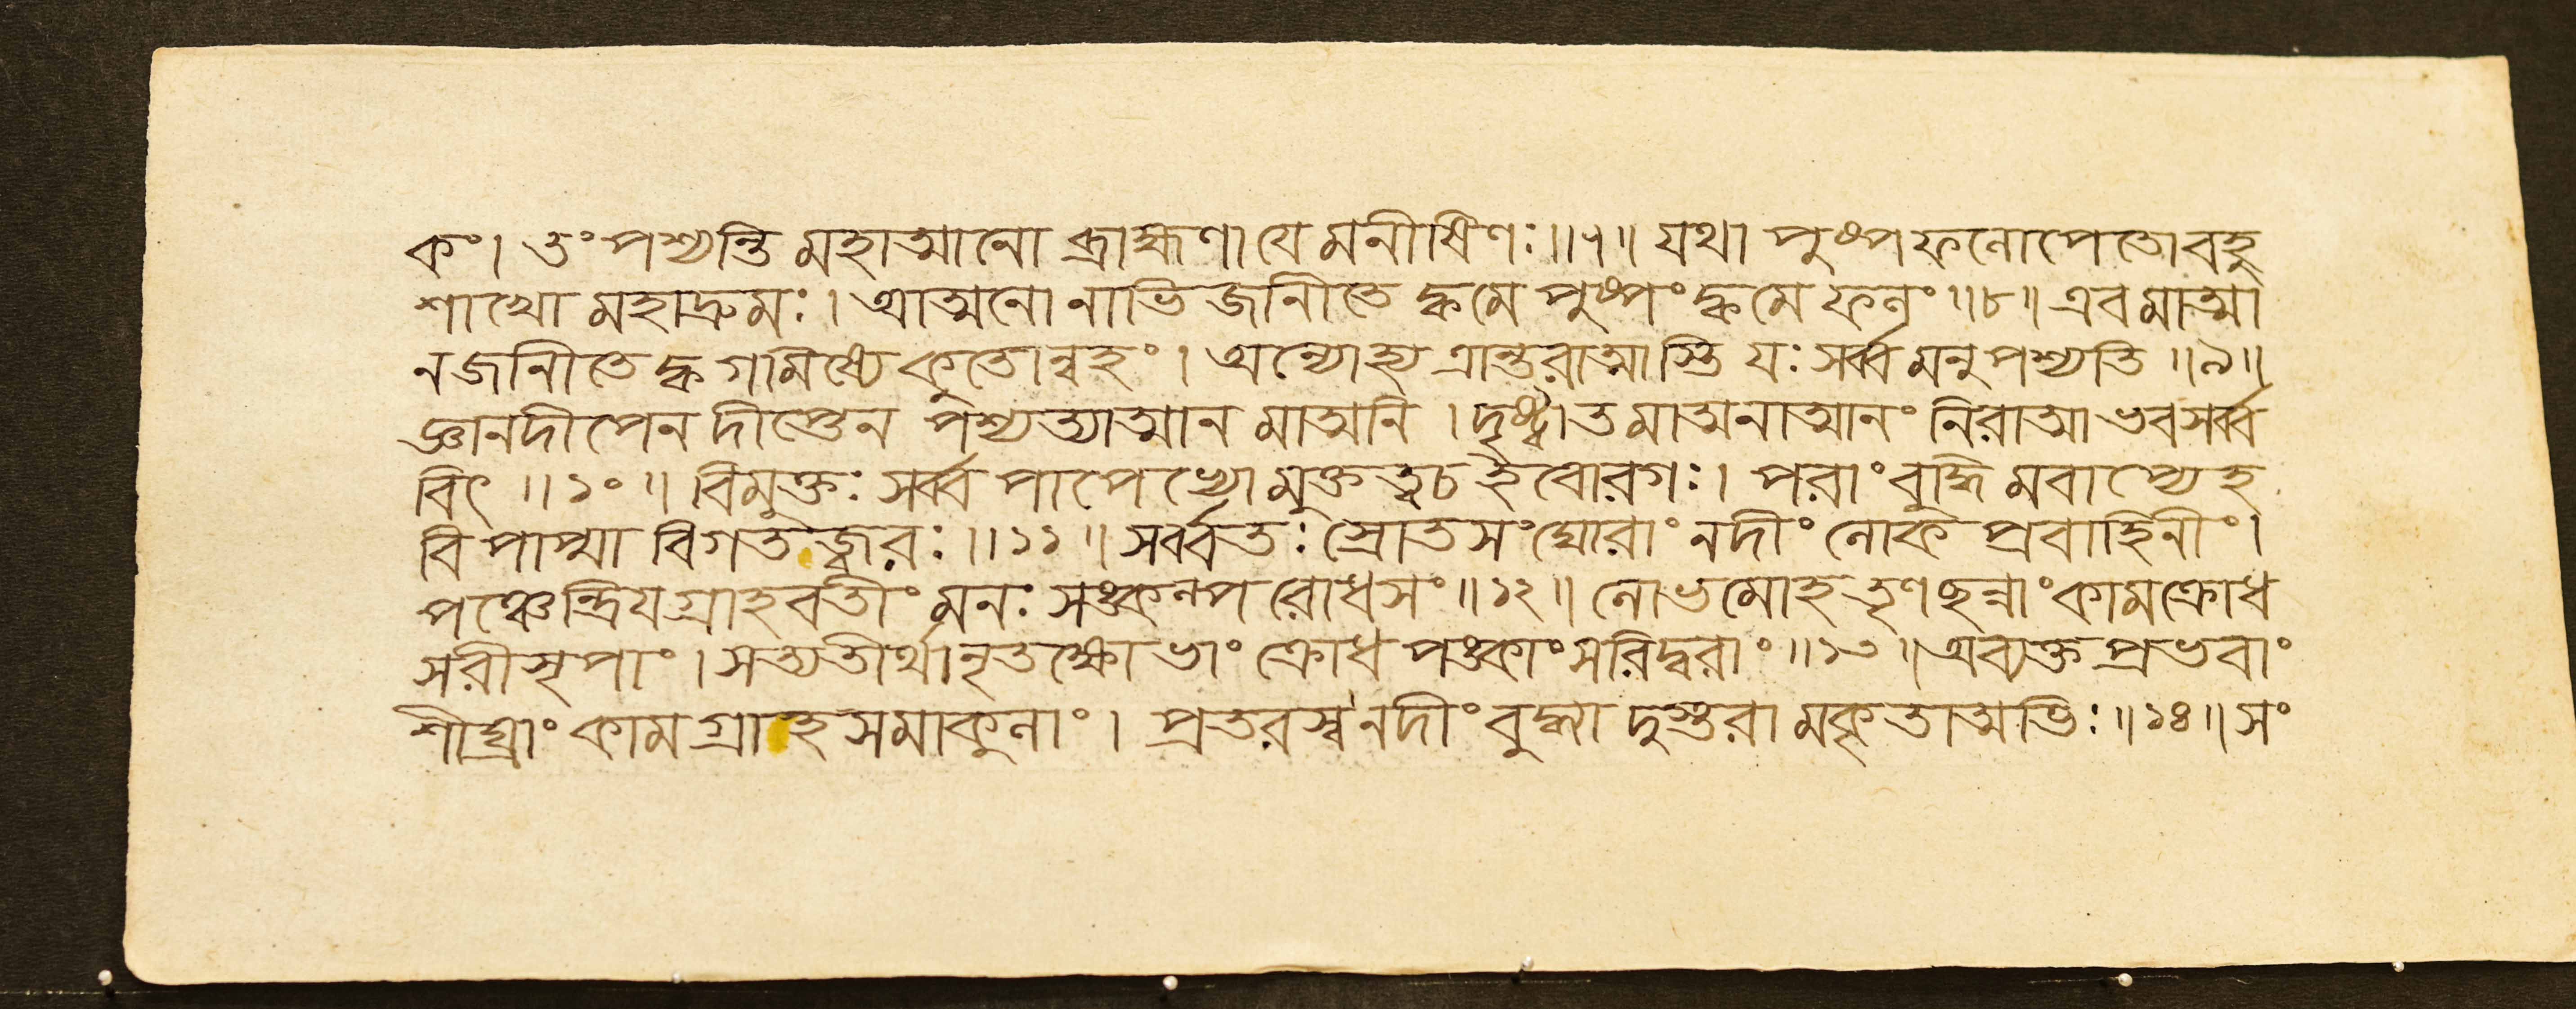 কং। তং পশ্যন্তি মহাত্মানো ব্রাহ্মণা যে মনীষিণঃ॥৭॥ যথা পুষ্পফলোপেতো বহু
শাখো মহাদ্রুমঃ। আত্মনো নাভিজানীতে ক্ব মে পুষ্পং ক্ব মে ফলং॥৮॥ এবমাত্মা
ন জানীতে ক্ব গমিষ্যে কুতোন্বহং। অন্যোহ্যত্রান্তরাত্মাস্তি যঃ সর্ব্বমনুপশ্যতি॥৯॥
জ্ঞানদীপেন দীপ্তেন পশ্যত্যাত্মানমাত্মনি। দৃষ্ট্বাতমাত্মনাত্মানং নিরাত্মা ভব সর্ব্ব
বিৎ॥১০॥ বিমুক্তঃ সর্ব্বপাপেভ্যো মুক্তত্বচ ইবোরগঃ। পরাং বুদ্ধিমবাপ্যেহ
বিপাপ্মা বিগতজ্বরঃ॥১১॥ সর্ব্বতঃ স্রোতসং ঘোরাং নদীং লোকপ্রবাহিনীং।
পঞ্চেন্দ্রিযগ্রাহবতীং মনঃসঙ্কল্পরোধসং॥১২॥ লোভমোহতৃণছন্নাং কামক্রোধ
সরীসৃপাং। সত্যতীর্থানৃতক্ষোভাং ক্রোধপঙ্কাং সরিদ্বরাং॥১৩॥ অব্যক্তপ্রভবাং
শীঘ্রাং কামগ্রাহসমাকুলাং। প্রতরস্ব নদীং বুদ্ধ্যা দুস্তরামকৃতাত্মভিঃ॥১৪॥ সং